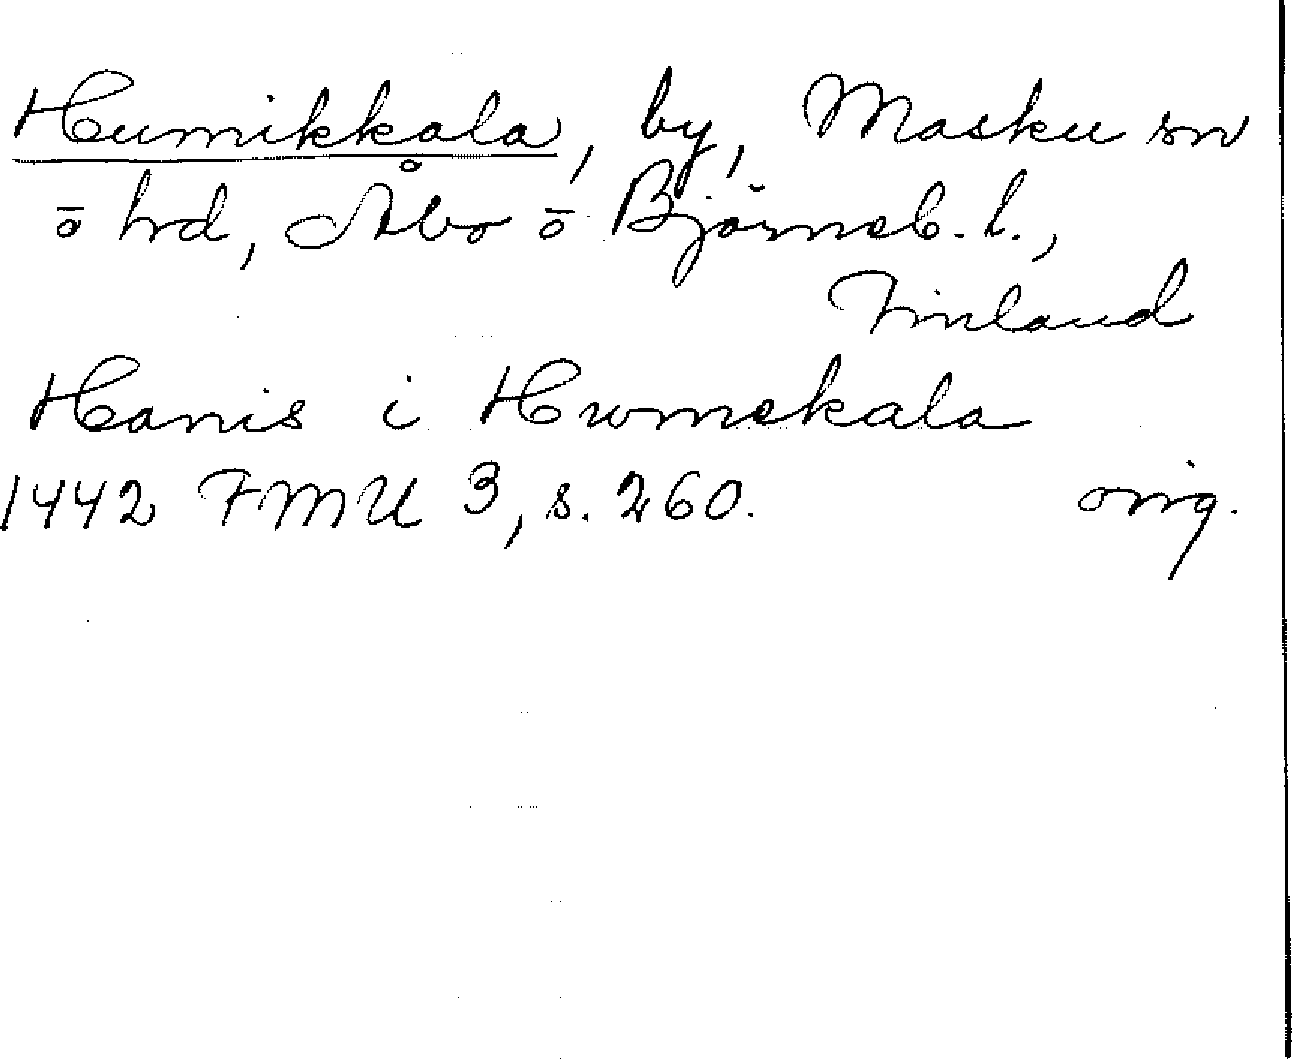 Humikkala, by, Masku sn
ō hd, Åbo ō Björneb. l.,
Finland
Hanis i Hwmekala
1442 FMU 3, s. 260. orig.